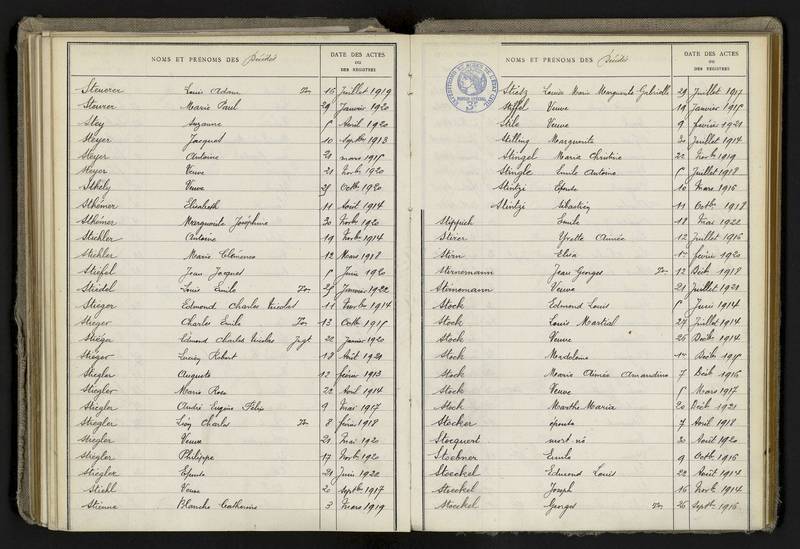 NOMS ET PRÉNOMS DES Décédés
DATE DES ACTES
OU
DES REGISTRES
Steuerer Louis Adam 16 Juillet 1919
Steurer Marie Paul 29 Janvier 1920
Stey Suzanne Avril 1920
Steyer Jacques 10 Septbre 1913
Steyer Antoine 21 mars
Steyer Veuve 21 Novbre 1920
Sthély Veuve Octbre 1920
Sthémer Elisabeth 11 Août 1914
Sthémer Marguerite Joséphine 30 Novbre 1920
Stichler Antoine 19 Novbre 1914
Stichler Marie Clémence 12 Mars 1918
Stiefel Jean Jacques Juin 1920
Stiedel Louis Emile Janvier 1922
Stieger Edmond Charles Nicolas 11 Novbre 1914
Stieger Charles Emile 13 Octbre
Stiéga Edmond Charles Nicolas Jugt 22 Janvier 1920
Stiéger Lucien Robert 18 Août 1921
Stiegler Auguste 12 février 1913
Stiegler Marie Rose 22 Avril 1914
Stiegler André Eugène Félix 9 Mai 1917
Stiegler Léon Charles 8 février 1918
Stiegler Veuve 21 Mai 1920
Stiegler Philippe 17 Novbre 1920
Stiegler Epouse 21 Juin 1922
Stiehl Veuve 20 Septbre 1917
Stienne Blanche Catherine 3 Mars 1919
NOMS ET PRÉNOMS DES Décédés
DATE DES ACTES
OU
DES REGISTRES
Louise Marie Marguerite Gabrielle 29 Juillet 1917
Stiffel Veuve 19 Janvier
Stile Veuve 9 février 1921
Stilling Marguerite 30 Juillet 1914
Stingel Maria Christine 22 Novbre 1919
Stingle Emile Antoine Juillet 1918
Stintzi Epouse 10 Mars 1916
Stintzi Sébastien 11 Octbre 1918
Stippich Emile 18 Mai 1922
Stirer Yvette Aimée 12 Juillet 1916
Stirn Elisa février 1920
Stirnemann Jean Georges 12 Décbre 1918
Stirnemann Veuve 21 Juillet 1921
Stock Edmond Louis Juin 1914
Stock Louis Martial 27 Juillet 1914
Stock Veuve 26 Décbre 1914
Stock Madeleine Décbre
Stock Marie Aimée Amandine 7 Décbre 1916
Stock Veuve Mars 1917
Stock Marthe Maria 20 Décbre 1921
Stocker épouse 7 Avril 1918
Stocquert mort né 30 Août 1920
Stoebner Emile 9 Octbre 1916
Stoeckel Edmond Louis 22 Août 1914
Stoeckel Joseph 16 Novbre 1914
Stoeckel Georges 26 Septbre 1916